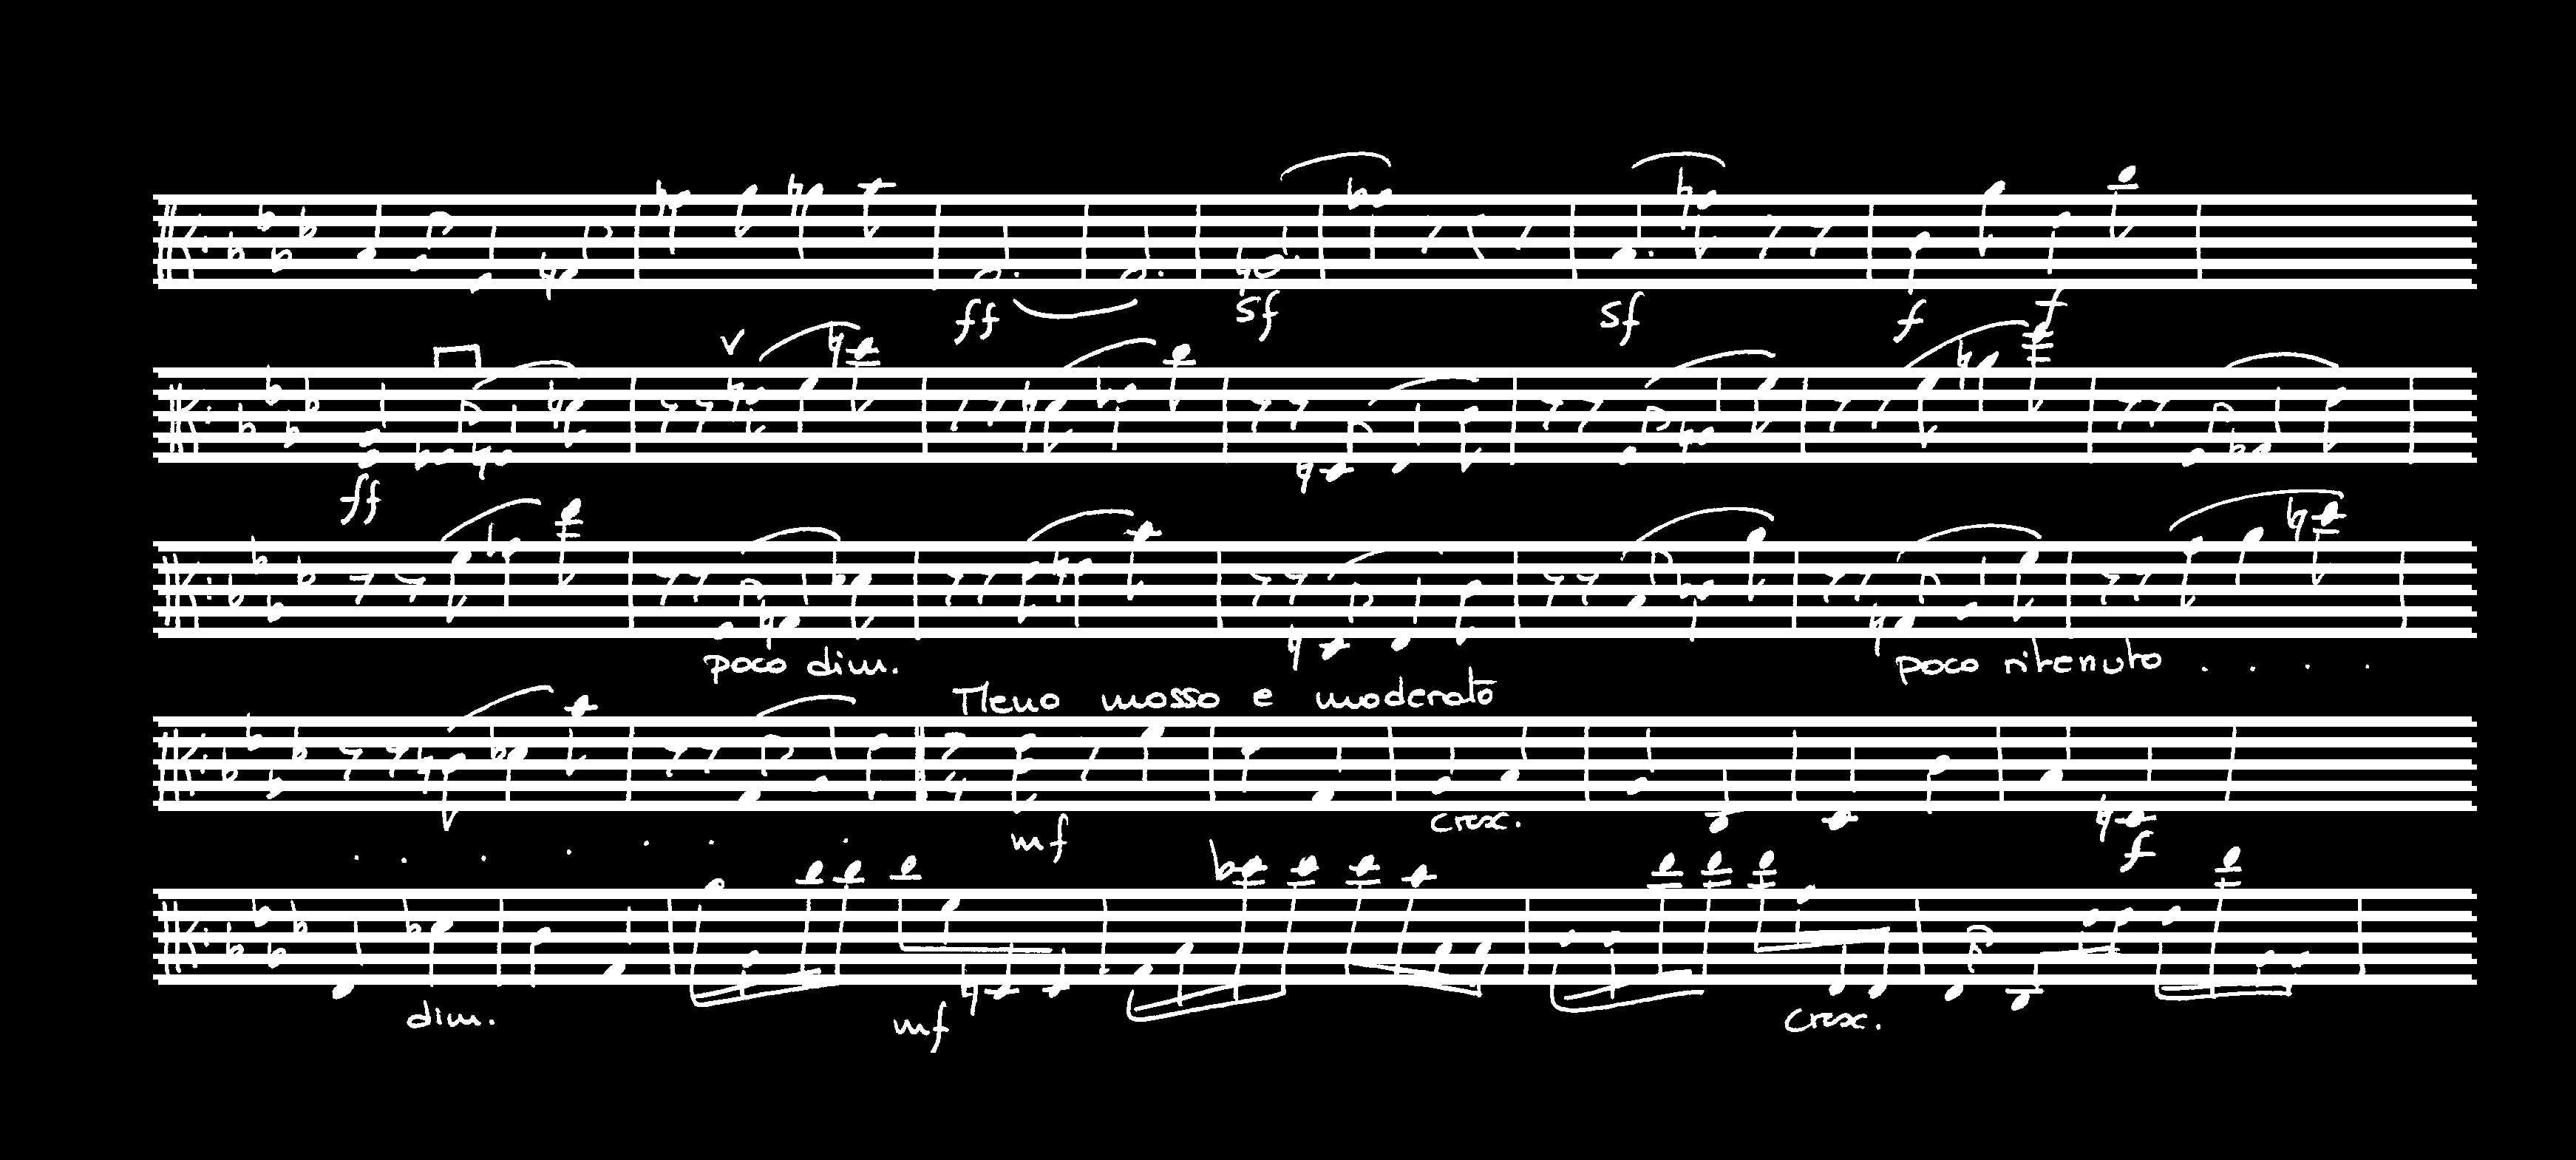 ff sf sf f f
v
ff
poco dim. poco ritenuto . . . .
Meno mosso e moderato
. . . . . . . mf cresc. f
dim. mf cresc.